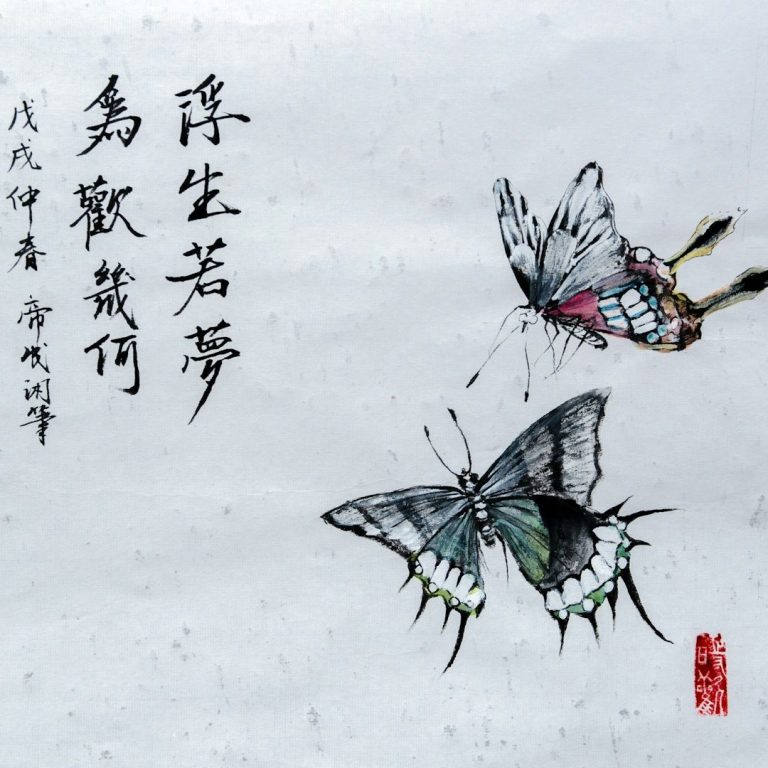 浮生若夢
為歡幾何
戊戌仲春 帝成閑筆